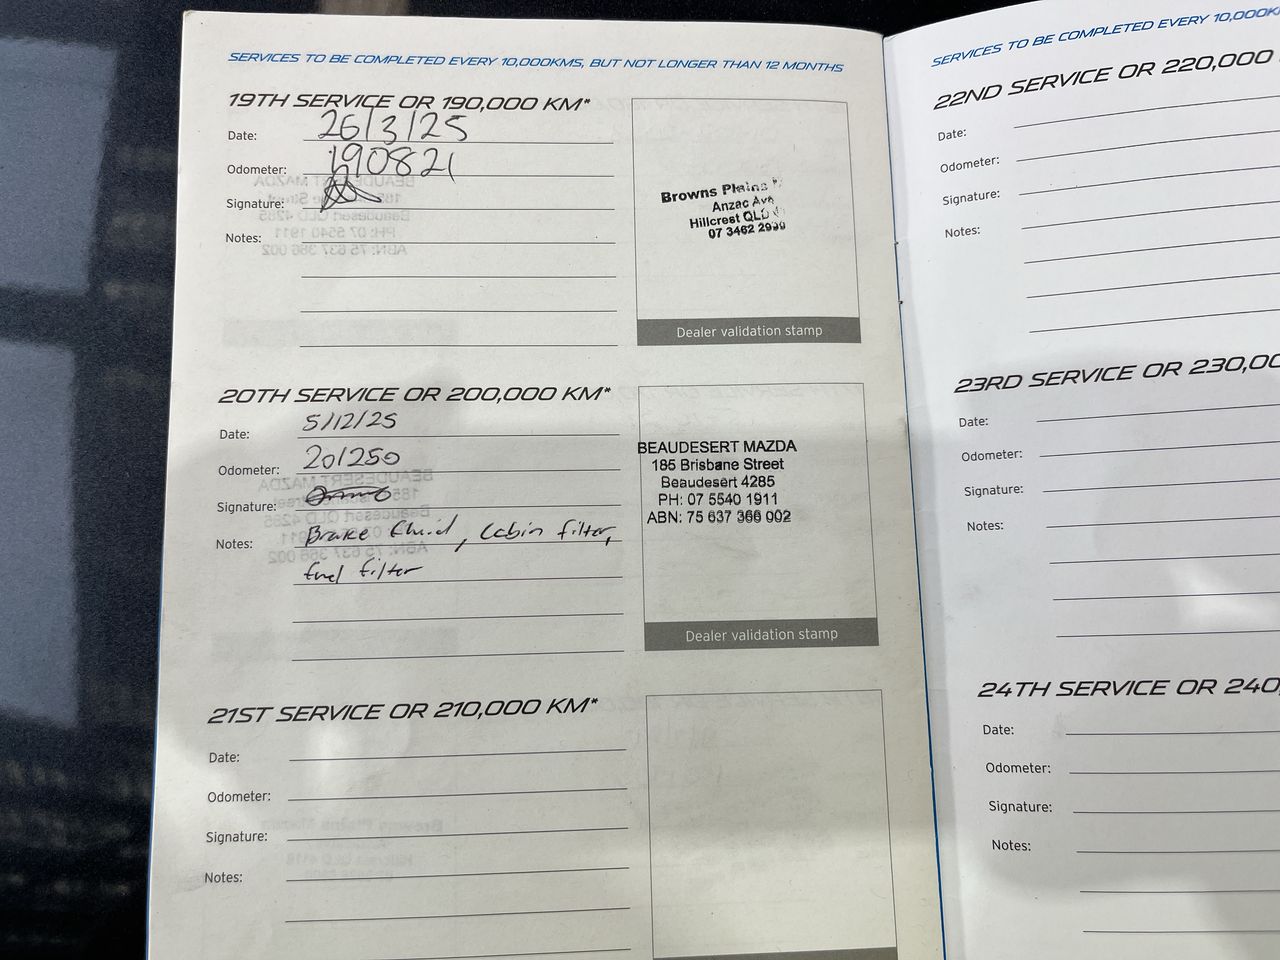 SERVICES TO BE COMPLETED EVERY 10,000KMS, BUT NOT LONGER THAN 12 MONTHS
19TH SERVICE OR 190,000 KM*
Date: 26/3/25
Odometer: 190821
Signature:
Notes:
Browns Plains
Anzac Ave
Hillcrest QLD
07 3462 2999
Dealer validation stamp
20TH SERVICE OR 200,000 KM*
Date: 5/12/25
Odometer: 201250
Signature:
Notes: Brake fluid, cabin filter,
fuel filter
BEAUDESERT MAZDA
185 Brisbane Street
Beaudesert 4285
PH: 07 5540 1911
ABN: 75 637 366 002
Dealer validation stamp
21ST SERVICE OR 210,000 KM*
Date:
Odometer:
Signature:
Notes:
SERVICES TO BE COMPLETED EVERY 10,000K
22ND SERVICE OR 220,000
Date:
Odometer:
Signature:
Notes:
23RD SERVICE OR 230,00
Date:
Odometer:
Signature:
Notes:
24TH SERVICE OR 240,
Date:
Odometer:
Signature:
Notes: